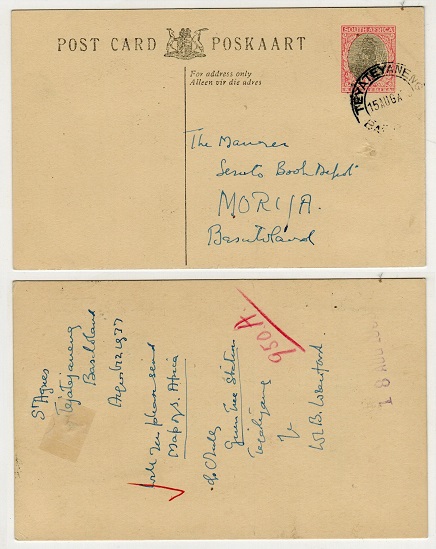 POST CARD POSKAART
For address only
Alleen vir die adres
SOUTH AFRICA
TEYATEYANENG
15 AUG
The Manager
Sesuto Book Depot
MORIJA.
Basutoland
St Agnes
Teyateyaneng
Basutoland
August 12 1937
Will you please send
Map of S. Africa
Green Tree Station
Teyateyaneng
W. B.
950A
18 AUG